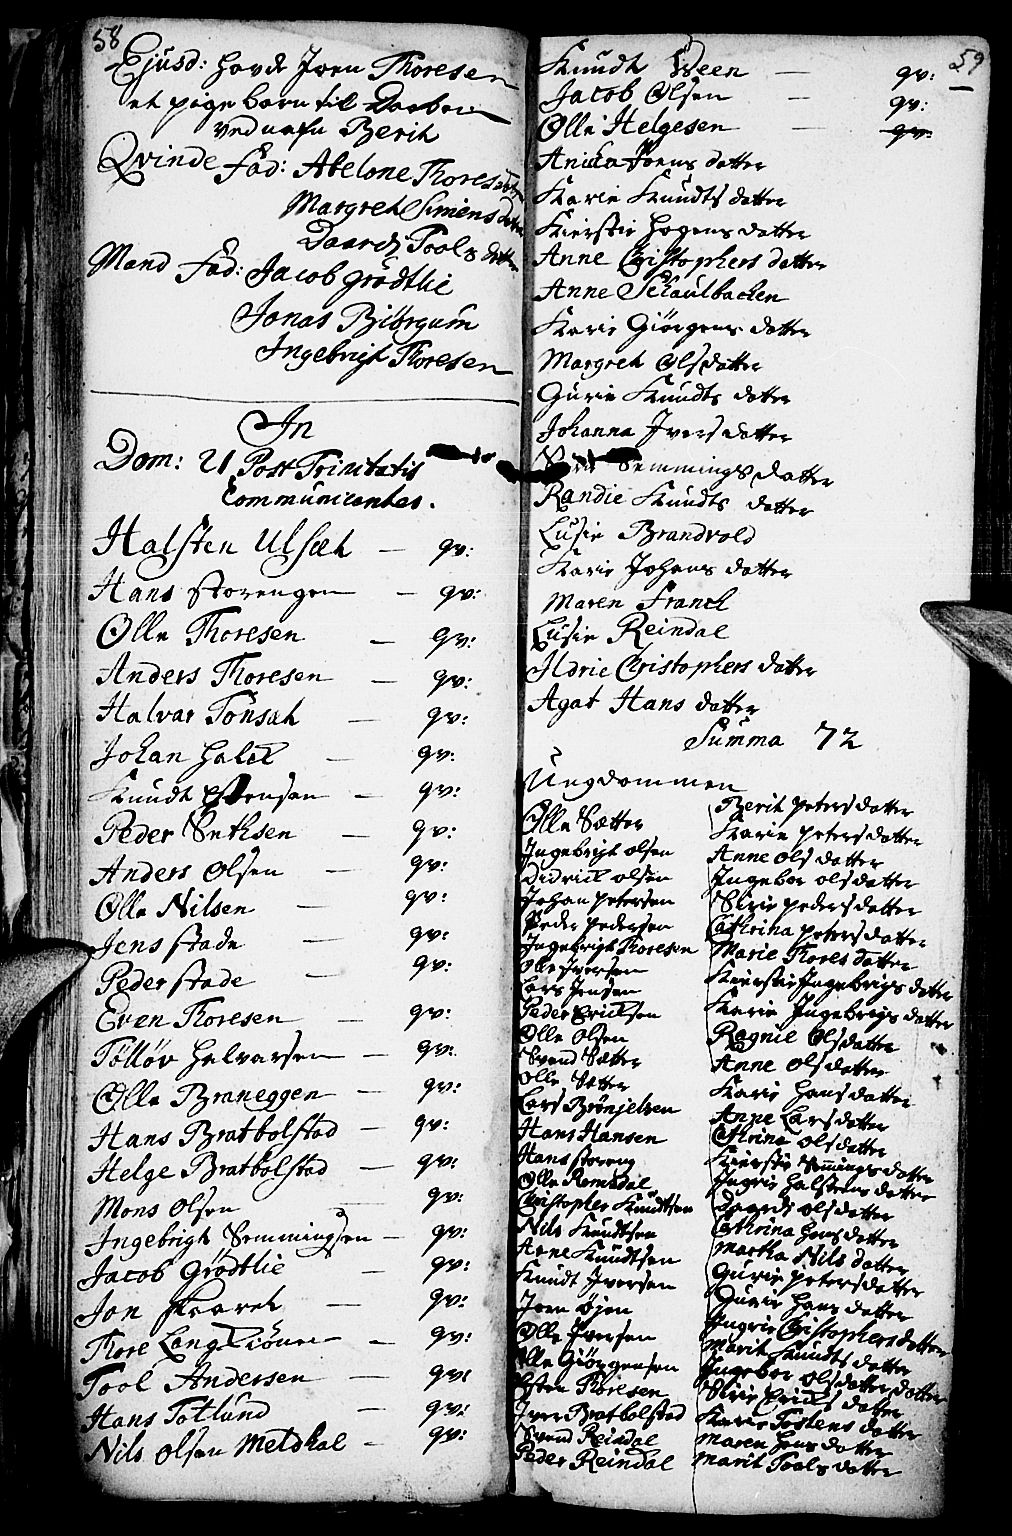 58
Ejusd: hafde Iven Thoresen
et pige barn til Daaben
ved nafn Berit
Qvinde fad: Abelone Thores datter
Margreth Simens datter
Daardi Pools datter
Mand fad: Jacob Grødtlie
Jonas Biørgum
Ingebrigt Thoresen
In
Dom: 21 Post Trinitatis
Communicantes.
Halsten Ulset — qv:
Hans Storengen — qv:
Olle Thoresen — qv:
Anders Thoresen — qv:
Halvar Tønset — qv:
Johan — qv:
Knudt Estensen — qv:
Peder Sethsen — qv:
Anders Olsen — qv:
Olle Nilsen — qv:
Jens Stade — qv:
Peder Stade — qv:
Even Thoresen — qv:
Tølløv Halvarsen — qv:
Olle Braneggen — qv:
Hans Bratbolstad — qv:
Helge Bratbolstad — qv:
Mons Olsen — qv:
Ingebrigt Semmingsen — qv:
Jacob Grødtlie — qv:
Jon — qv:
Thore — qv:
Pool Andersen — qv:
Hans Totlund — qv:
Nils Olsen Meldhal — qv:
59
Knudt Veen — qv:
Jacob Olsen — qv:
Olle Helgesen — qv:
Anicka Ivens datter
Karie Knudts datter
Kierstie Hogens datter
Anne Christophers datter
Anne Schaulbachen
Karie Giørgens datter
Margreth Olsdatter
Gurie Knudts datter
Johanna Ivers datter
Semmings datter
Randie Knudts datter
Lusie Brandvold
Karie Johans datter
Maren Franck
Lusie Reindal
Ildrie Christophers datter
Agat Hans datter
Summa 72
Ungdommen
Olle Sætter
Ingebrigt Olsen
Didrick Olsen
Johan Petersen
Peder Pedersen
Ingebrigt Thoresen
Olle Iversen
Lars Jensen
Peder Ericksen
Olle Olsen
Svend Sætter
Olle Sætter
Lars Brønjelsen
Hans Hansen
Hans Storeng
Olle Romsdal
Christopher Knudtsen
Nils Knudtsen
Arne Knudtsen
Knudt Iversen
Iven Øjen
Olle Iversen
Olle Giørgensen
Esten Thoresen
Iver Bratbolstad
Svend Reindal
Peder Reindal
Berit Peters datter
Karie Peters datter
Anne Ols datter
Ingebor Ols datter
Sirie Peders datter
Cathrina Peters datter
Marie Thores datter
Kierstie Ingebrigs datter
Karie Ingebrigs datter
Ragnil Ols datter
Anne Ols datter
Karie Hans datter
Anne Lars datter
Cathrina Ols datter
Kierstie Semmings datter
Ingrie Halstens datter
Daardi Ols datter
Cathrina Hans datter
Martha Nils datter
Gurie Peters datter
Gurie Hans datter
Ingrie Christophers datter
Marit Knudts datter
Ingebor Ols datter
Sirie Ericks datter
Karie Tostens datter
Maren Hans datter
Marit Pools datter